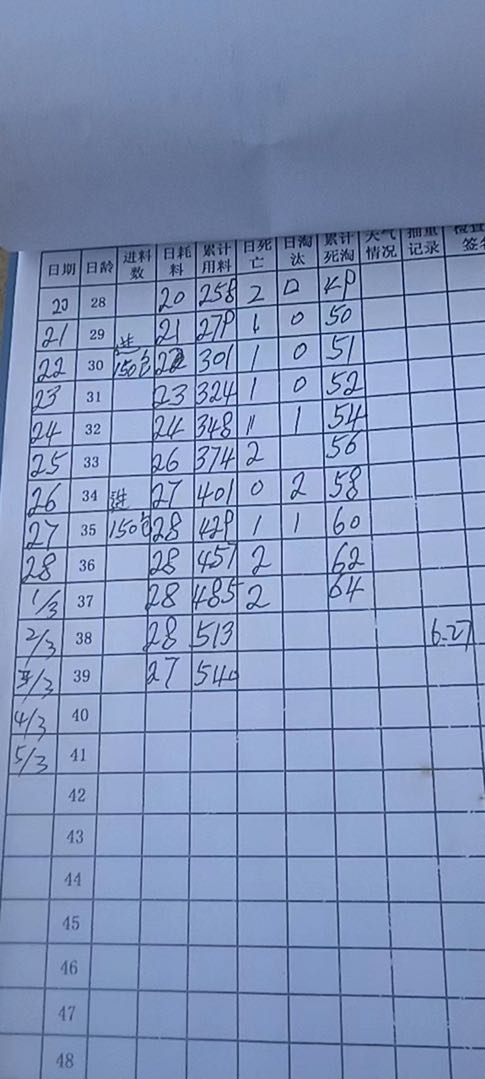 日期 日龄 进料数 日耗料 累计用料 日死亡 日淘汰 累计死淘 天气情况 抽重记录 检查签名
20 28 20 258 2 0 49
21 29 21 279 1 0 50
22 30 进150包 22 301 1 0 51
23 31 23 324 1 0 52
24 32 24 348 11 1 54
25 33 26 374 2 56
26 34 27 401 0 2 58
27 35 进150包 28 429 1 1 60
28 36 28 457 2 62
1/3 37 28 485 2 64
2/3 38 28 513 6.27
3/3 39 27 540
4/3 40
5/3 41
42
43
44
45
46
47
48